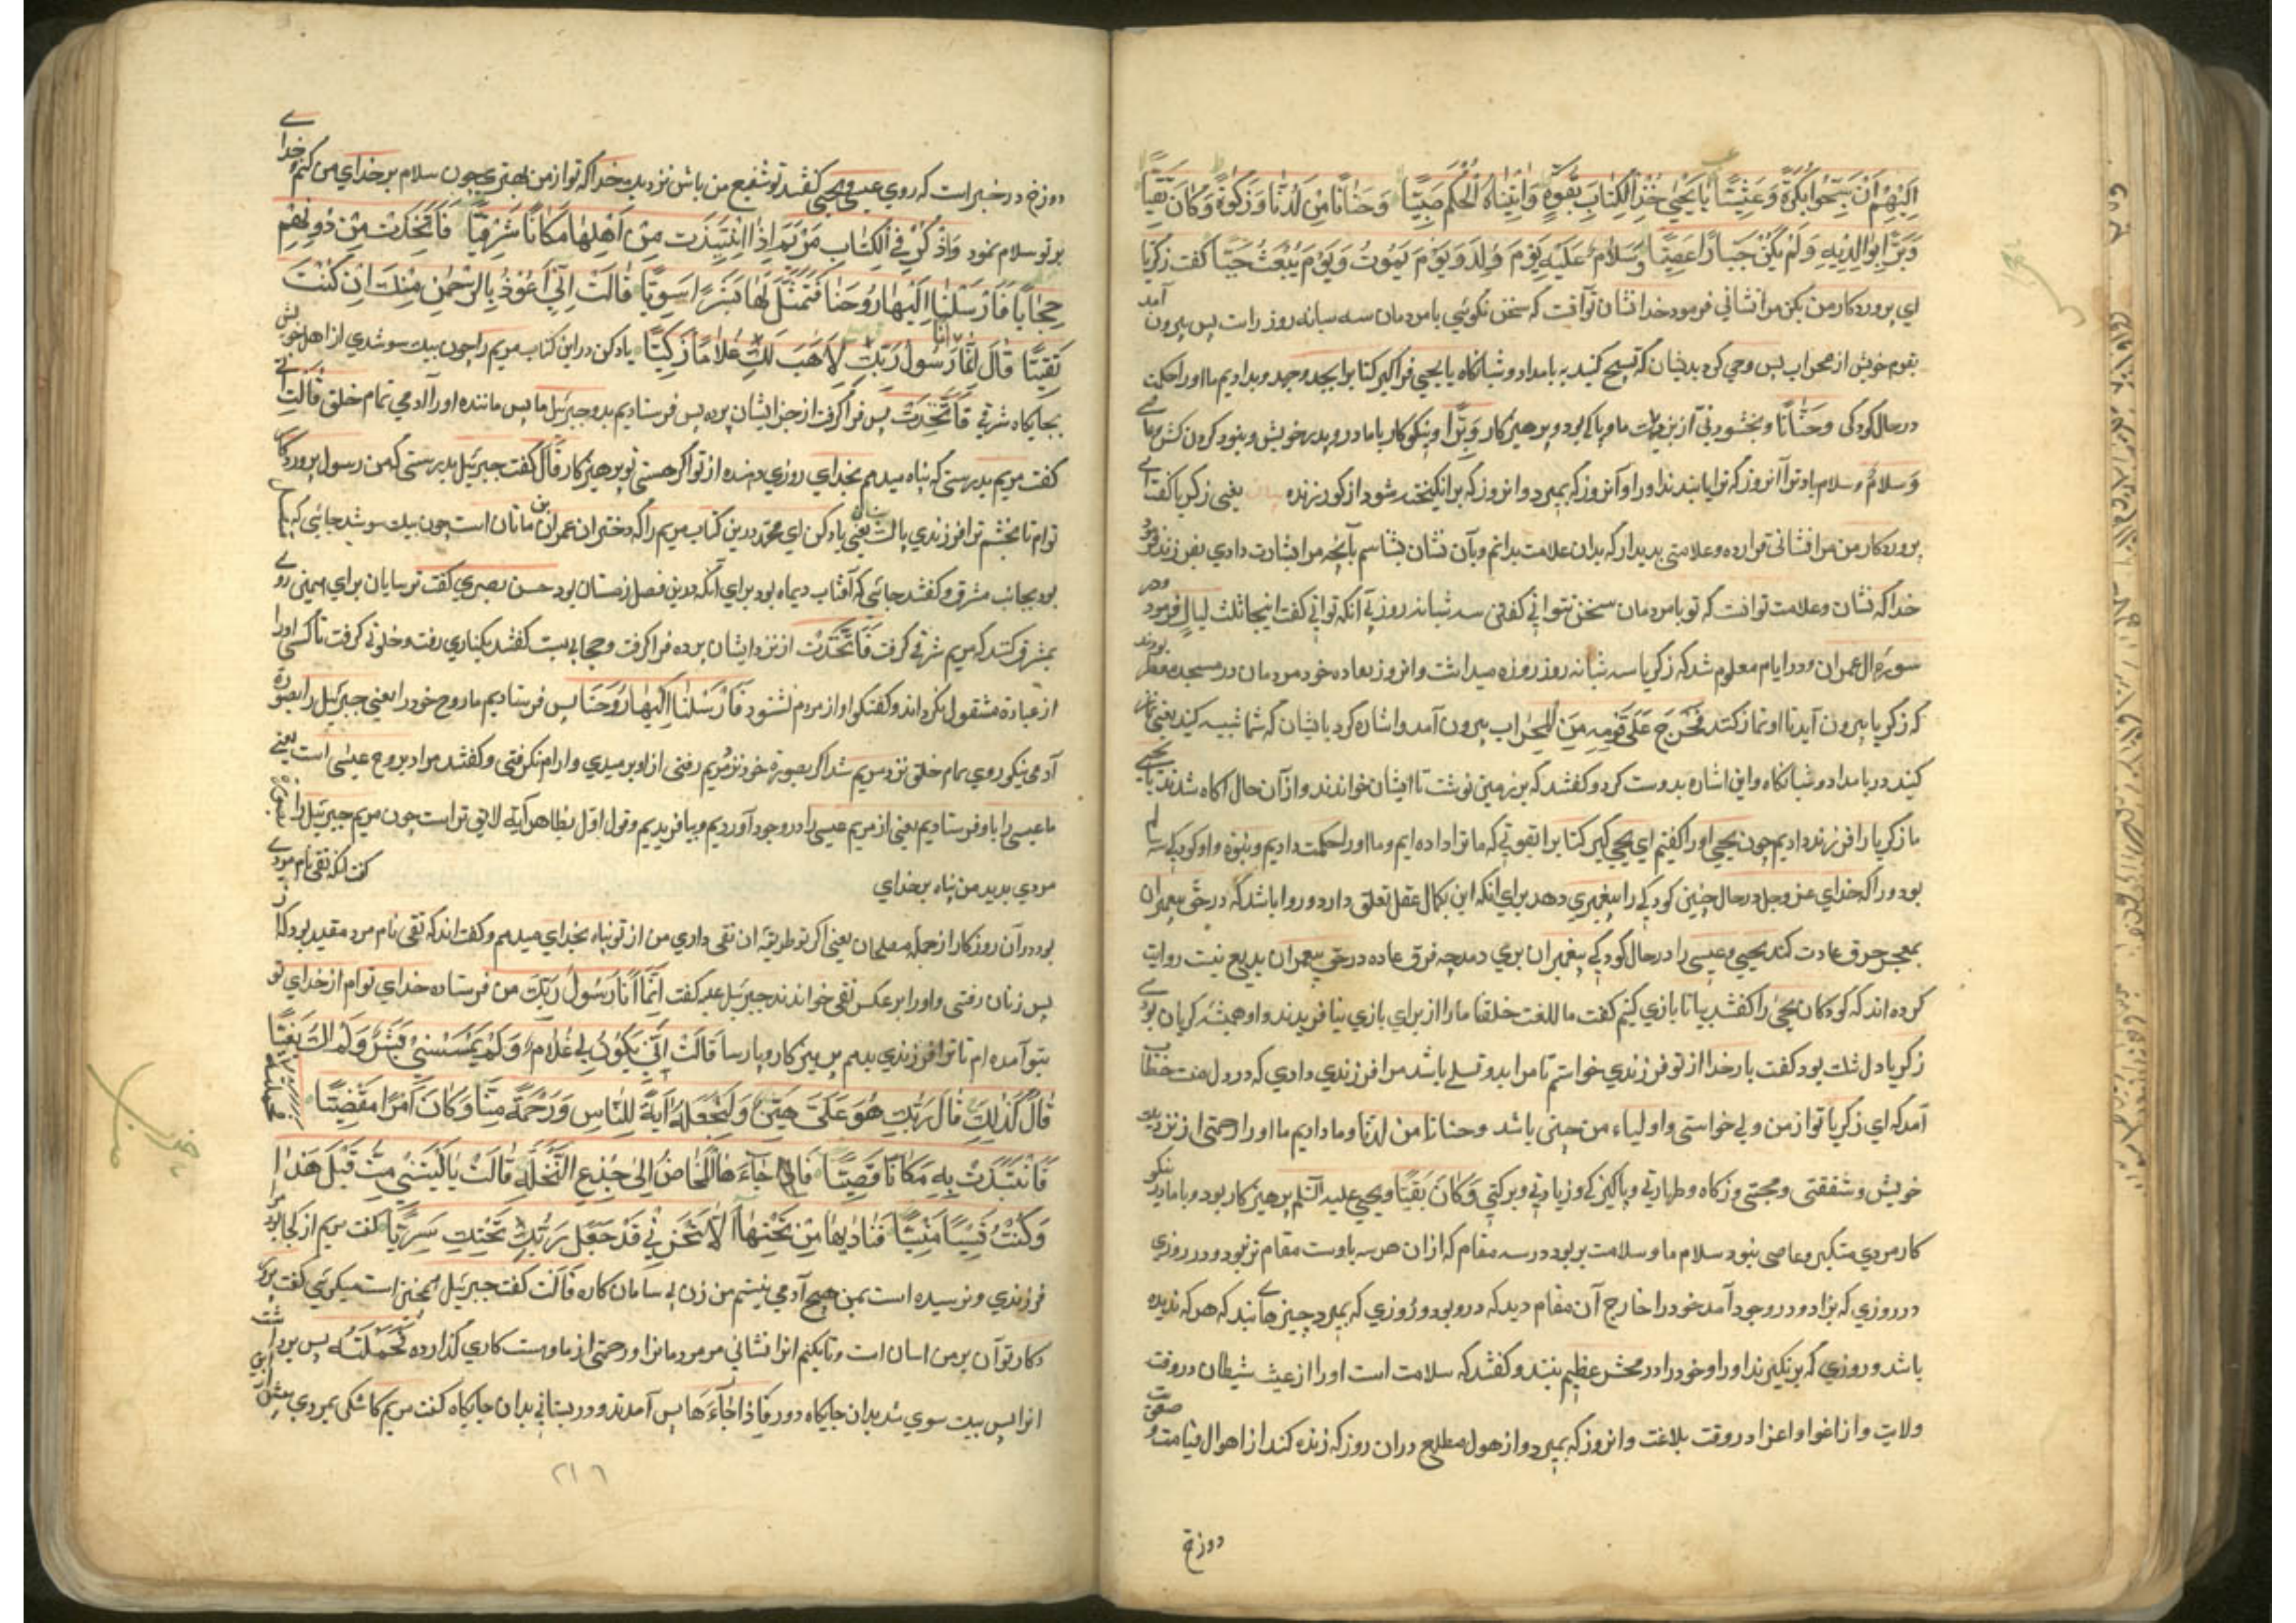 اِلَيْهِمْ اَنْ سَبِّحُوا بُكْرَةً وَعَشِيًّا يَا يَحْيٰى خُذِ الْكِتَابَ بِقُوَّةٍ وَاٰتَيْنَاهُ الْحُكْمَ صَبِيًّا وَحَنَانًا مِنْ لَدُنَّا وَزَكٰوةً وَكَانَ تَقِيًّا
وَبَرًّا بِوَالِدَيْهِ وَلَمْ يَكُنْ جَبَّارًا عَصِيًّا وَسَلَامٌ عَلَيْهِ يَوْمَ وُلِدَ وَيَوْمَ يَمُوتُ وَيَوْمَ يُبْعَثُ حَيًّا كفت زكريا
اي پروردكار من بكن مرا نشاني فرمود خدا نشان تو آنست كه سخن نكوئي با مردمان سه شبانه روز راست پس بيرون آمد
بقوم خويش از محراب پس وحي كرد بديشان كه تسبيح كنيد بامداد و شبانكاه يا يحيي فراكير كتابرا بجد و جهد و بداديم ما اورا حكمت
در حال كودكي وحنانا و بخشودني از نزديك ما و پاكي بود و پرهيزكار وَبَرًّا و نيكوكار با مادر و پدر خويش و نبود كردن كش
وَسلامٌ و سلام باد ترا آنروز كه ترا بزاييدند اورا و آنروز كه بميرد و انروز كه برانكيخته شود از كور زنده يعني زكريا كفت اي
پروردكار من مرا نشاني قرار ده و علامتي پديدار كه بدان علامت بدانم و بآن نشان بشناسم بآنچه مرا بشارت دادي بفرزند فرمود
خدا كه نشان و علامت تو آنست كه تو با مردمان سخن نتواني كفتن سه شبانه روز بي آنكه تواني كفت اينجا ثلث ليال فرمود و در
سورة ال عمران و در ايام معلوم شد كه زكريا سه شبانه روز روزه ميداشت و انروز بعاده خود مردمان در مسجد منتظر بودند
كه زكريا بيرون آيد تا او نماز كند فَخَرَجَ عَلٰى قَوْمِهِ مِنَ الْمِحْرَاب بيرون آمد و اشاره كرد بايشان كه شما تسبيح كنيد يعني نماز
كنيد در بامداد و شبانكاه و اين اشاره بدست كرد و كفتند كه بر زمين نوشت تا ايشان خواندند و از آن حال اكاه شدند يا يحيي
ما زكريا را فرزند داديم چون يحيي اورا كفتيم اي يحيي كير كتابرا بقوتي كه ما ترا داده ايم و ما اورا حكمت داديم و نبوة و او كودكي سه ساله
بود و را كه خداي عز و جل در حال چنين كودكي را پيغمبري دهد براي انكه اين بكمال عقل تعلق دارد و روا باشد كه در حق پيغمبران
بمعجز خرق عادت كند يحيي و عيسي را در حال كودكي پيغمبران بري دهد چه خرق عاده در حق پيغمبران بديع نيست روايت
كرده اند كه كودكان يحيي را كفتند بيا تا بازي كنيم كفت ما للعب خلقنا ما را از براي بازي نيافريدند و او هميشه كريان بودي
زكريا دل تنك بود كفت بار خدا از تو فرزندي خواستم تا مرا بدو تسلي باشد مرا فرزندي دادي كه در دل منت خطاب
آمد كه اي زكريا تو از من ولي خواستي و اولياء من چنين باشد وحنانا من لدنا و ما داديم ما اورا رحمتي از نزديك
خويش و شفقتي و محبتي و زكاه و طهارتي و پاكيزكي و زيادتي و بركتي وَكَانَ تَقِيًّا و يحيي عليه السلم پرهيزكار بود و با مادر پدر نيكو
كار مردي متكبر و عاصي نبود سلام ما و سلامت برو بود در سه مقام كه ازان هر سه باوست مقام تر نبود و در روزي
در روزي كه بزاد و در وجود آمد خود را خارج آن مقام ديد كه درو بود و روزي كه بميرد چيزهائي بيند كه هركه نديده
باشد و روزي كه برنكيزند اورا و خود را در محشر عظيم بيند و كفتند كه سلامت است اورا از عيث شيطان در وقت
ولادت و از اغوا و اعزا در وقت بلاغت و انروز كه بميرد و از هول مطلع دران روز كه زنده كند از اهوال قيامت و صعقت
دوزخ
دوزخ در خبر است كه روي عيسي يحيي كفتند تو شفيع من باش نزديك خدا كه تو از من بهتري چون سلام بر خداي من كنم و خداي
بر تو سلام نمود وَاذْكُرْ فِي الْكِتَابِ مَرْيَمَ اِذِ انْتَبَذَتْ مِنْ اَهْلِهَا مَكَانًا شَرْقِيًّا فَاتَّخَذَتْ مِنْ دُونِهِمْ
حِجَابًا فَاَرْسَلْنَا اِلَيْهَا رُوحَنَا فَتَمَثَّلَ لَهَا بَشَرًا سَوِيًّا قَالَتْ اِنِّي اَعُوذُ بِالرَّحْمٰنِ مِنْكَ اِنْ كُنْتَ
تَقِيًّا قَالَ اِنَّمَا اَنَا رَسُولُ رَبِّكِ لِاَهَبَ لَكِ غُلَامًا زَكِيًّا ياد كن در اين كتاب مريم را چون بيك سو شدي از اهل خويش
بجايكاه شرقي فَاتَّخَذَتْ پس فراكرفت از جز ايشان پرده پس فرستاديم بدو جبرئيل ما پس ماننده اورا آدمي تمام خلق قَالَتْ اِنِّي
كفت مريم بدرستي كه پناه ميدهم بخداي روزي دهنده از تو اكر هستي تو پرهيزكار قَالَ كفت جبرئيل بدرستي كه من رسول پروردكار
توام تا بخشم ترا فرزندي پاك يعني ياد كن اي محمد بدين كتاب مريم را كه دختران عمران بن ماتان است چون بيك سو شد جائي كه
بود بجانب مشرق و كفتند جائي كه آفتاب ديماه بود براي آنكه دران فصل زمستان بود حسن بصري كفت ترسايان براي همين روي
بمشرق كنند كه مريم شرقي كرفت فَاتَّخَذَتْ از نزد ايشان پرده فراكرفت و حجابي بست كفتند بكناري رفت و خلوتي كرفت تا كسي اورا
از عبادة مشغول نكرداند و كفتكوي او از مردم نشنود فَاَرْسَلْنَا اِلَيْهَا رُوحَنَا پس فرستاديم ما روح خود را يعني جبرئيل را بصورة
آدمي نيكو روي تمام خلق نزد مريم شد اكر بصورة خود نزد مريم رفتي از او برميدي و ارام نكرفتي و كفتند مراد بروح عيسي است يعني
ما عيسي را باو فرستاديم يعني از مريم عيسي را در وجود آورديم و بيافريديم و قول اول بظاهر آيه لايق تر است چون مريم جبرئيل را
مردي بديد من پناه بر خداي كفت انكه تقي نام مردي
بود در آن روزكار از جمله مصلحان يعني اكر تو طريقه ان تقي داري من از تو پناه بخداي ميدهم و كفته اند كه تقي نام مرد مفسد بود كه از
پس زنان رفتي و اورا بر عكس تقي خواندند جبرئيل عليه كفت اِنَّمَا اَنَا رَسُولُ رَبِّكِ من فرستاده خداي توام از خداي تو
بتو آمده ام تا ترا فرزندي بدهم پرهيزكار و پارسا قَالَتْ اَنّٰى يَكُونُ لِي غُلَامٌ وَلَمْ يَمْسَسْنِي بَشَرٌ وَلَمْ اَكُ بَغِيًّا
قَالَ كَذٰلِكِ قَالَ رَبُّكِ هُوَ عَلَيَّ هَيِّنٌ وَلِنَجْعَلَهُ اٰيَةً لِلنَّاسِ وَرَحْمَةً مِنَّا وَكَانَ اَمْرًا مَقْضِيًّا
فَانْتَبَذَتْ بِهِ مَكَانًا قَصِيًّا فَاَجَاءَهَا الْمَخَاضُ اِلٰى جِذْعِ النَّخْلَةِ قَالَتْ يَا لَيْتَنِي مِتُّ قَبْلَ هٰذَا
وَكُنْتُ نَسْيًا مَنْسِيًّا فَنَادٰيهَا مِنْ تَحْتِهَا اَلَّا تَحْزَنِي قَدْ جَعَلَ رَبُّكِ تَحْتَكِ سَرِيًّا كفت مريم از كجا بود مرا
فرزندي و نرسيده است بمن هيچ آدمي نيستم من زن بي سامان كاره قَالَتْ كفت جبرئيل همچنين است ميكوئي كفت
كار تو آن بر من اسان است و تا بكنيم انرا نشاني مر مردمانرا و رحمتي از ما و هست كاري كذارده فَحَمَلَتْهُ پس برداشت
انرا پس بيك سوي شد بدان جايكاه دور فَاِذَا جَاءَهَا پس آمدند و در بستاني بدان جايكاه كفت مريم كاشكي بمردمي پيش از اين
٢١٦